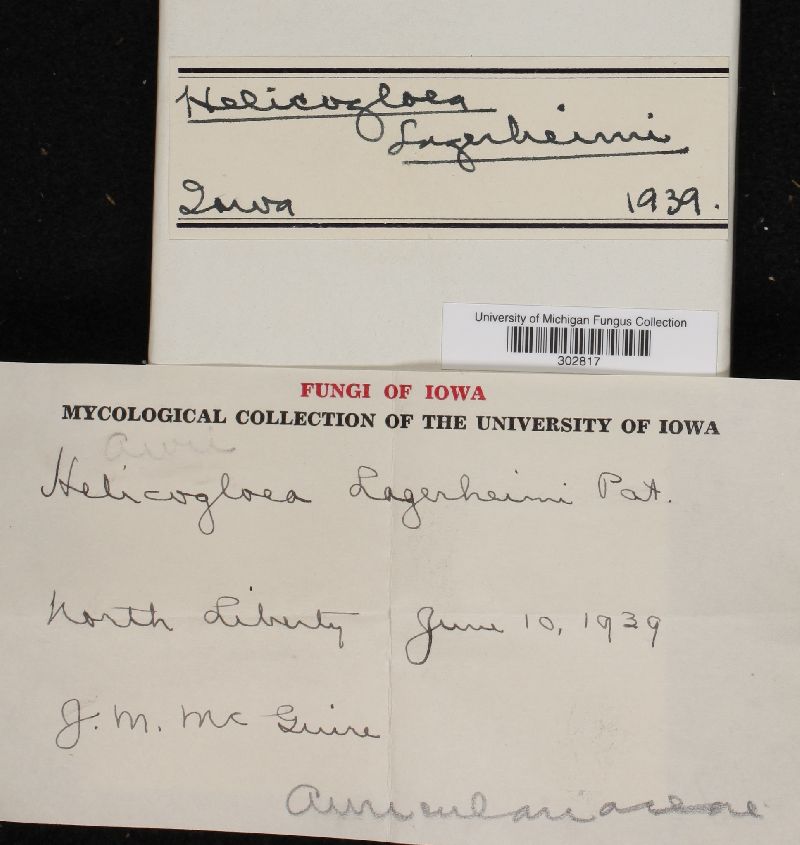 Helicogloea
Lagerheimi
Iowa 1939.
University of Michigan Fungus Collection
302817
FUNGI OF IOWA
MYCOLOGICAL COLLECTION OF THE UNIVERSITY OF IOWA
Auri
Helicogloea Lagerheimi Pat.
North Liberty June 10, 1939
J. M. McGuire
Auriculariaceae